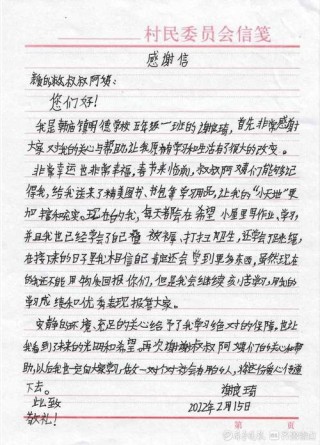 村民委员会信笺
感谢信
亲爱的叔叔阿姨：
您们好！
我是朝庙镇明德学校五年级一班的谢琼琦，首先非常感谢
大家对我的关心与帮助，让我原有学习和生活有了很大的改变。
非常幸运也非常幸福，春节来临前，叔叔阿姨们能够记
得我，给我送来了精美图书、书包等学习用品，让我的“小天地”更
加丰富和充实。现在的我，每天都会在希望小屋里写作业、学习
并且我也已经学会了自己叠被褥、打扫卫生，还学会了
在接下来的日子里我相信自己肯定还会学到更多东西，虽然现在
的我还不能用物质回报你们，但是我会继续刻苦学习，用我的
学习成绩和优秀表现报答大家。
安静的环境、充足的关心给予了我学习绝对的保障，也让
我看到了未来的光明和希望，再次谢谢叔叔阿姨们的关心和帮
助，以后我会一定向大家学习，做一个对社会有用的人，将这份爱心传递
下去。
此致
敬礼！
2022年2月15日
第 页